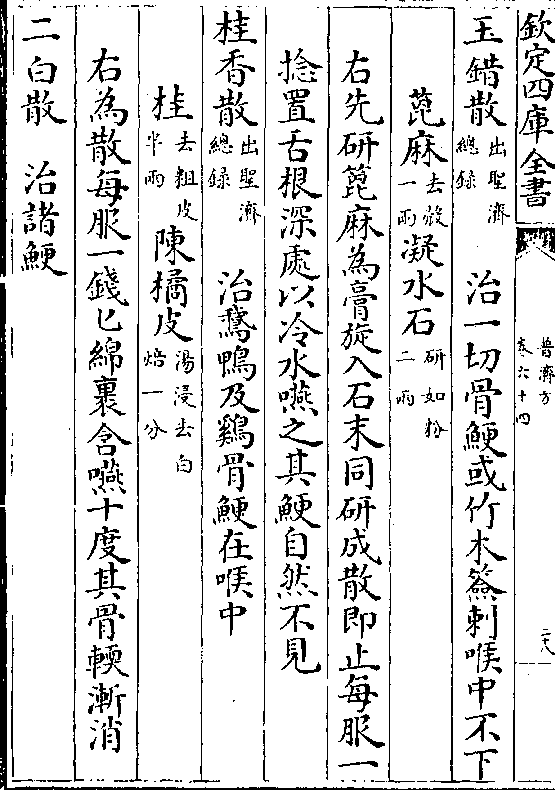 欽定四庫全書
普濟方
卷六十四
二十八
玉錯散出聖濟總録　治一切骨鯁或竹木簽刺喉中不下
蓖麻去殻一兩凝水石研如粉二兩
右先研蓖麻為膏旋入石末同研成散即止每服一
捻置舌根深處以冷水嚥之其鯁自然不見
桂香散出聖濟總録　治鵞鴨及鷄骨鯁在喉中
桂去粗皮半兩陳橘皮湯浸去白焙一分
右為散每服一錢匕綿裹含嚥十度其骨輭漸消
二白散　治諸鯁